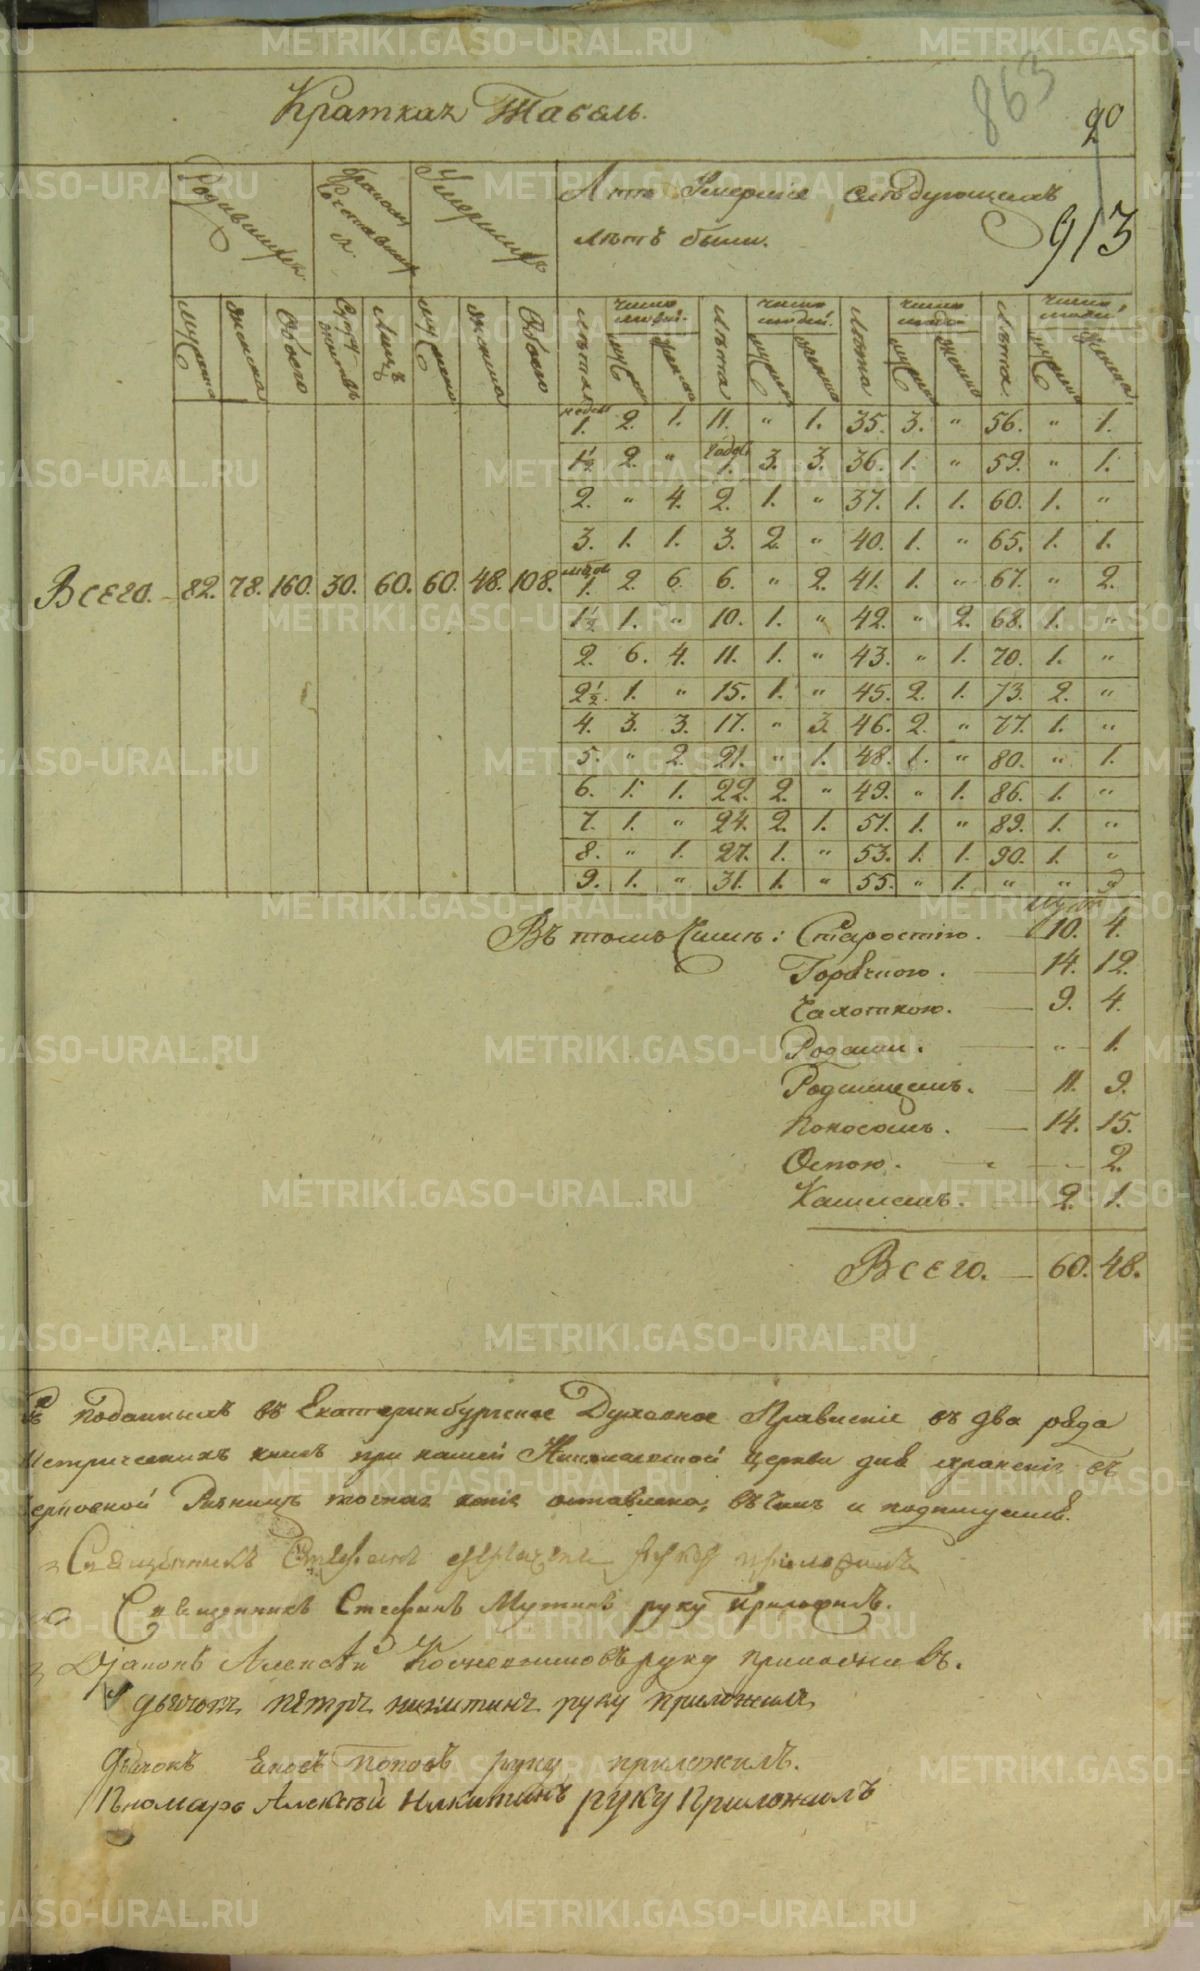 863
Краткая Табель.
20
Родившихся. Браковъ Умершихъ Лѣта Умершіе слѣдующихъ
лѣтъ были. 913
мужеска женска Обоего Супружествъ Лицъ мужеска женска Обоего Лѣта число людей мужеска женска Лѣта число людей мужеска женска Лѣта число людей мужеска женска Лѣта число людей мужеска женска
недель 1. 2. 1. 11. " 1. 35. 3. " 56. " 1.
1½ 2. " годовъ 1. 3. 3. 36. 1. " 59. " 1.
2. " 4. 2. 1. " 37. 1. 1. 60. 1. "
3. 1. 1. 3. 2. " 40. 1. " 65. 1. 1.
Всего. 82. 78. 160. 30. 60. 60. 48. 108. 1. 2. 6. 6. " 2. 41. 1. " 67. " 2.
1½ 1. " 10. 1. " 42. " 2. 68. 1. "
2. 6. 4. 11. 1. " 43. " 1. 70. 1. "
2½. 1. " 15. 1. " 45. 2. 1. 73. 2. "
4. 3. 3. 17. " 3. 46. 2. " 77. 1. "
5. " 2. 21. " 1. 48. 1. " 80. " 1.
6. 1. 1. 22. 2. " 49. " 1. 86. 1. "
7. 1. " 24. 2. 1. 51. 1. " 89. 1. "
8. " 1. 27. 1. " 53. 1. 1. 90. 1. "
9. 1. " 31. 1. " 55. " 1. " " "
Въ томъ числѣ: Старостію. 10. 4.
Горячкою. 14. 12.
Чахоткою. 9. 4.
Родами. " 1.
Родимцемъ. 11. 9.
Поносомъ. 14. 15.
Оспою. 2.
Кашлемъ. 2. 1.
Всего. 60. 48.
поданныхъ въ Екатеринбургское Духовное Правленіе въ два ряда
Метрическихъ книгъ при нашей Николаевской церкви для храненія въ
церковной Ризницѣ точная копія оставлена, въ чемъ и подпишемся.
Священникъ Стефанъ руку приложилъ
Священникъ Стефанъ Мутинъ руку приложилъ.
Діаконъ Алексѣй руку приложилъ.
дьячокъ петръ никитинъ руку приложилъ
Дьячокъ попов руку приложилъ.
Пономарь Алексѣй Никитинъ руку Приложилъ
METRIKI.GASO-URAL.RU